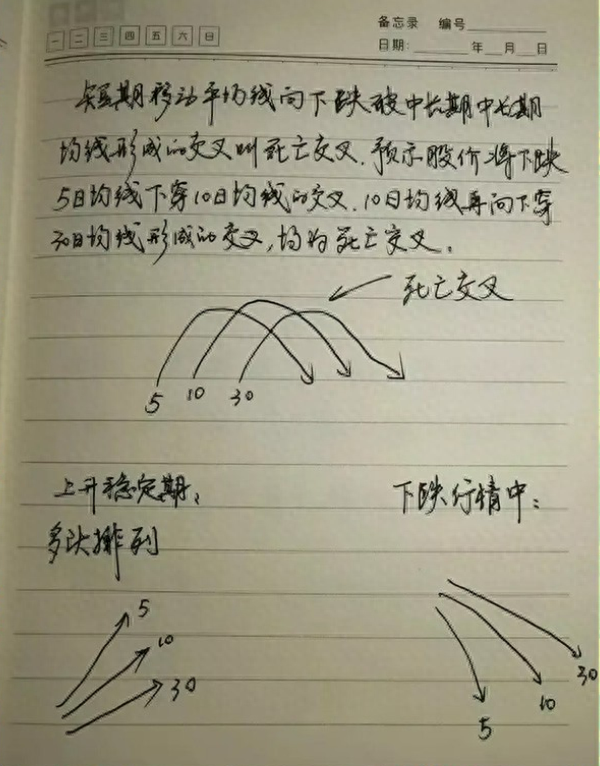 备忘录 编号
一 二 三 四 五 六 日
日期: 年 月 日
短期移动平均线向下跌破中长期中长期
均线形成的交叉叫死亡交叉.预示股价将下跌
5日均线下穿10日均线的交叉.10日均线再向下穿
30日均线形成的交叉,均为死亡交叉。
死亡交叉
5 10 30
上升稳定期:
下跌行情中:
多头排列
5
10
30
30
10
5